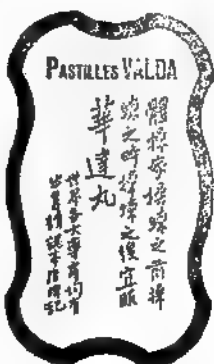 PASTILLES VALDA
體操家操練之前操
練之時操練之後宜服
華達丸
世界各大藥房均有